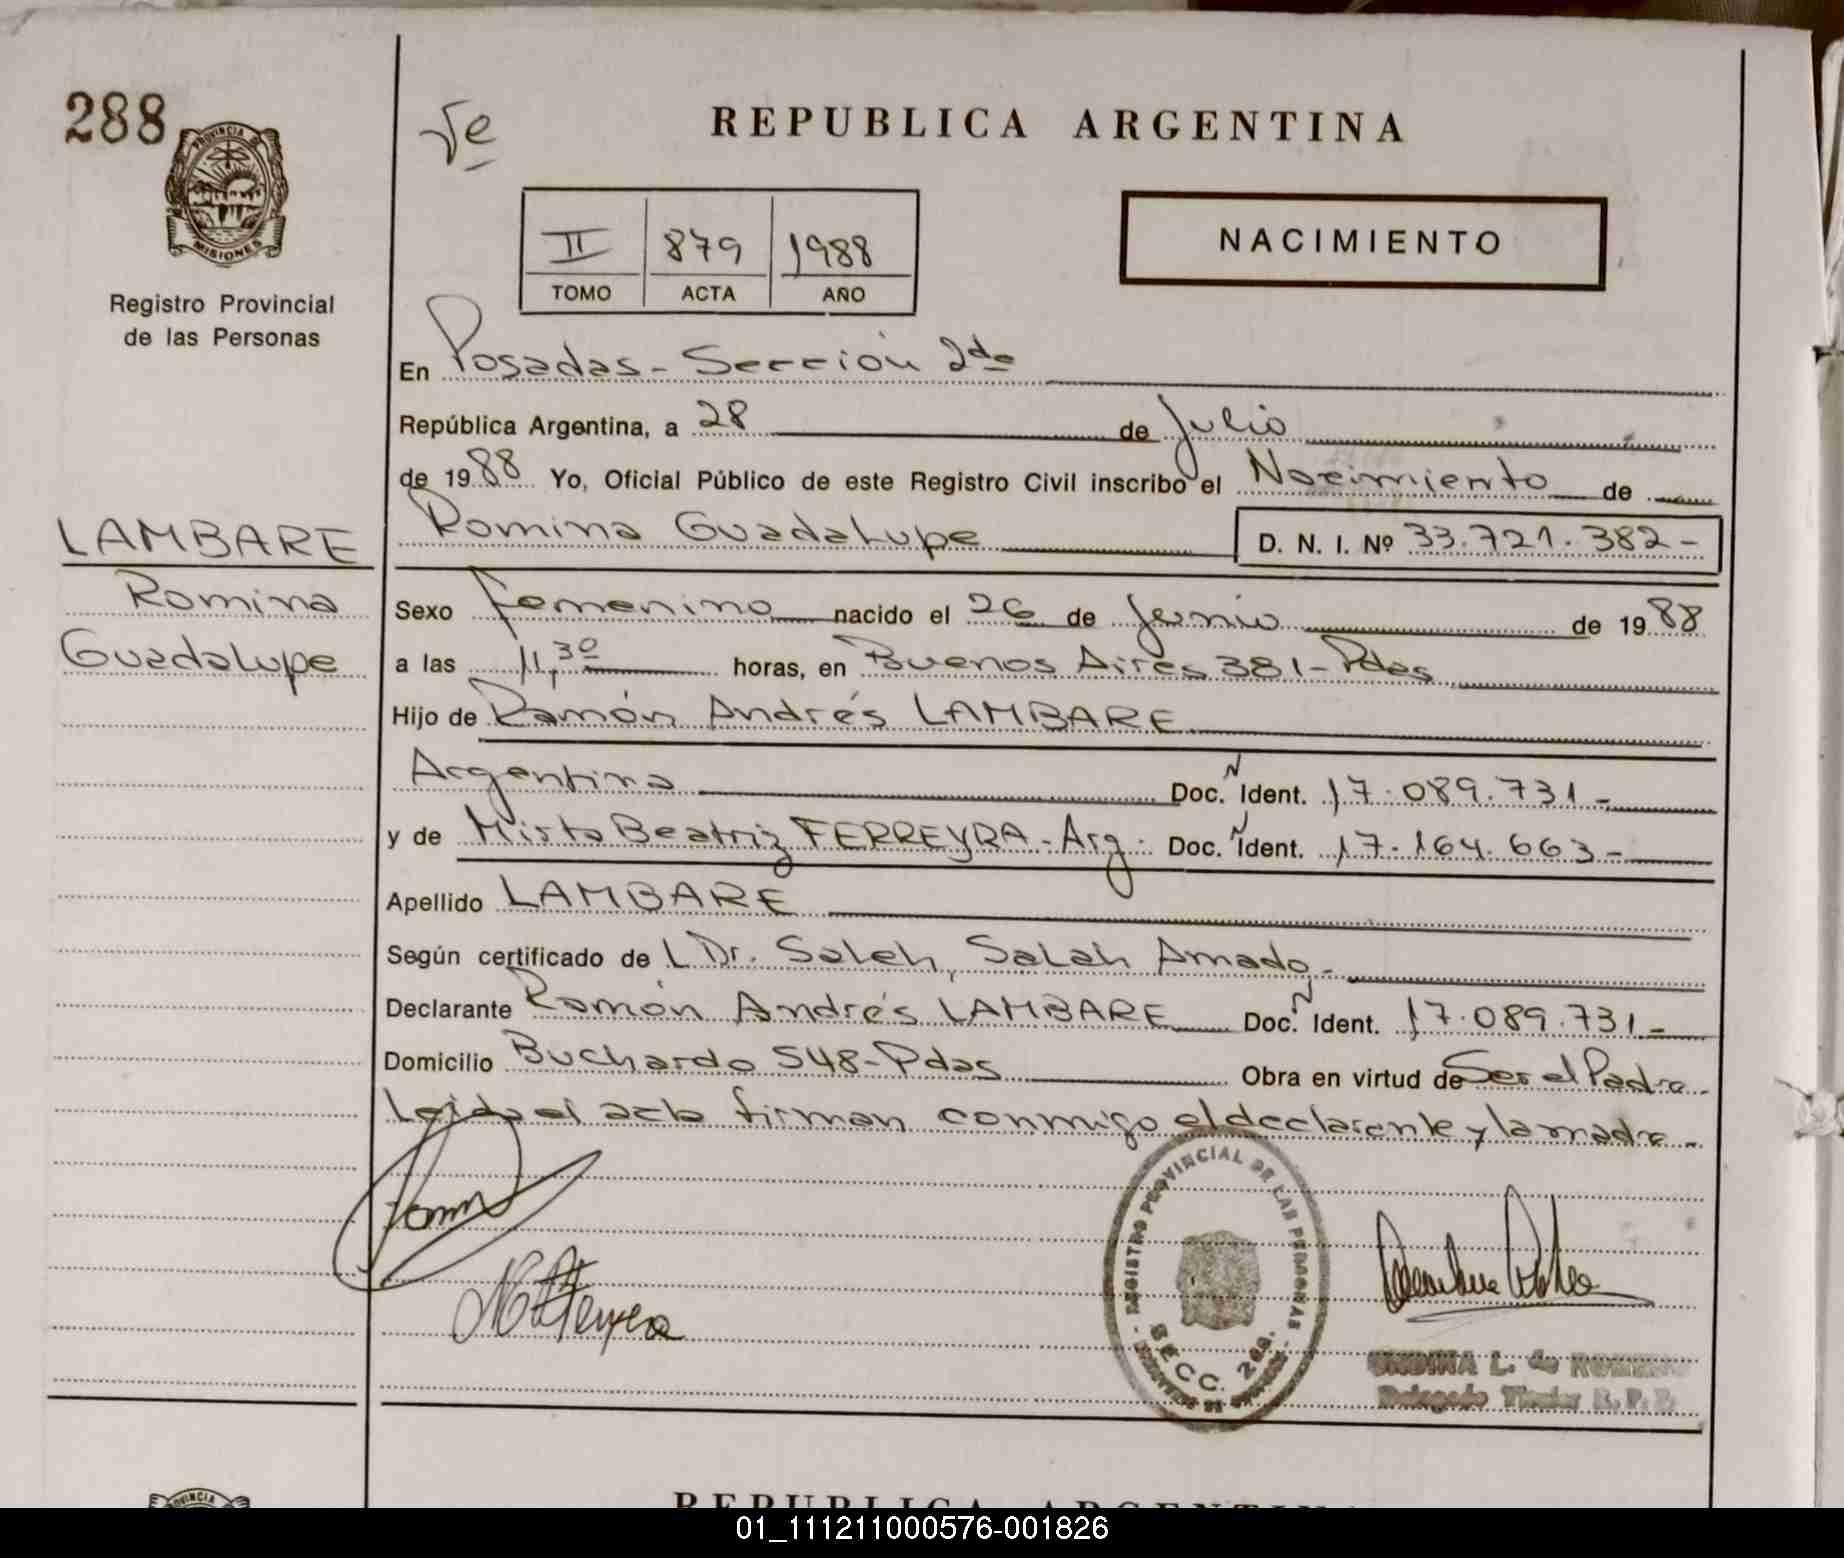 288
PROVINCIA DE
MISIONES
Registro Provincial
de las Personas
LAMBARE
Romina
Guadalupe
REPUBLICA ARGENTINA
II 879 1988
TOMO ACTA AÑO
NACIMIENTO
En Posadas - Sección 2da
República Argentina, a 28 de Julio
de 1988 Yo, Oficial Público de este Registro Civil inscribo el Nacimiento de
Romina Guadalupe D. N. I. Nº 33.721.382-
Sexo Femenino nacido el 26 de Junio de 1988
a las 11,30 horas, en Buenos Aires 381 - Pdas
Hijo de Ramón Andrés LAMBARE
Argentina Doc. N Ident. 17.089.731-
y de Mirta Beatriz FERREYRA - Arg. Doc. N Ident. 17.164.663-
Apellido LAMBARE
Según certificado de L Dr. Saleh, Salah Amado-
Declarante Ramón Andrés LAMBARE Doc. N Ident. 17.089.731-
Domicilio Buchardo 548 - Pdas Obra en virtud de Ser el Padre-
Leida el acta firman conmigo el declarante y la madre-
REGISTRO PROVINCIAL DE LAS PERSONAS
SECC. 2da.
L. de
Titular
PROVINCIA
REPUBLICA ARGENTINA
01_111211000576-001826